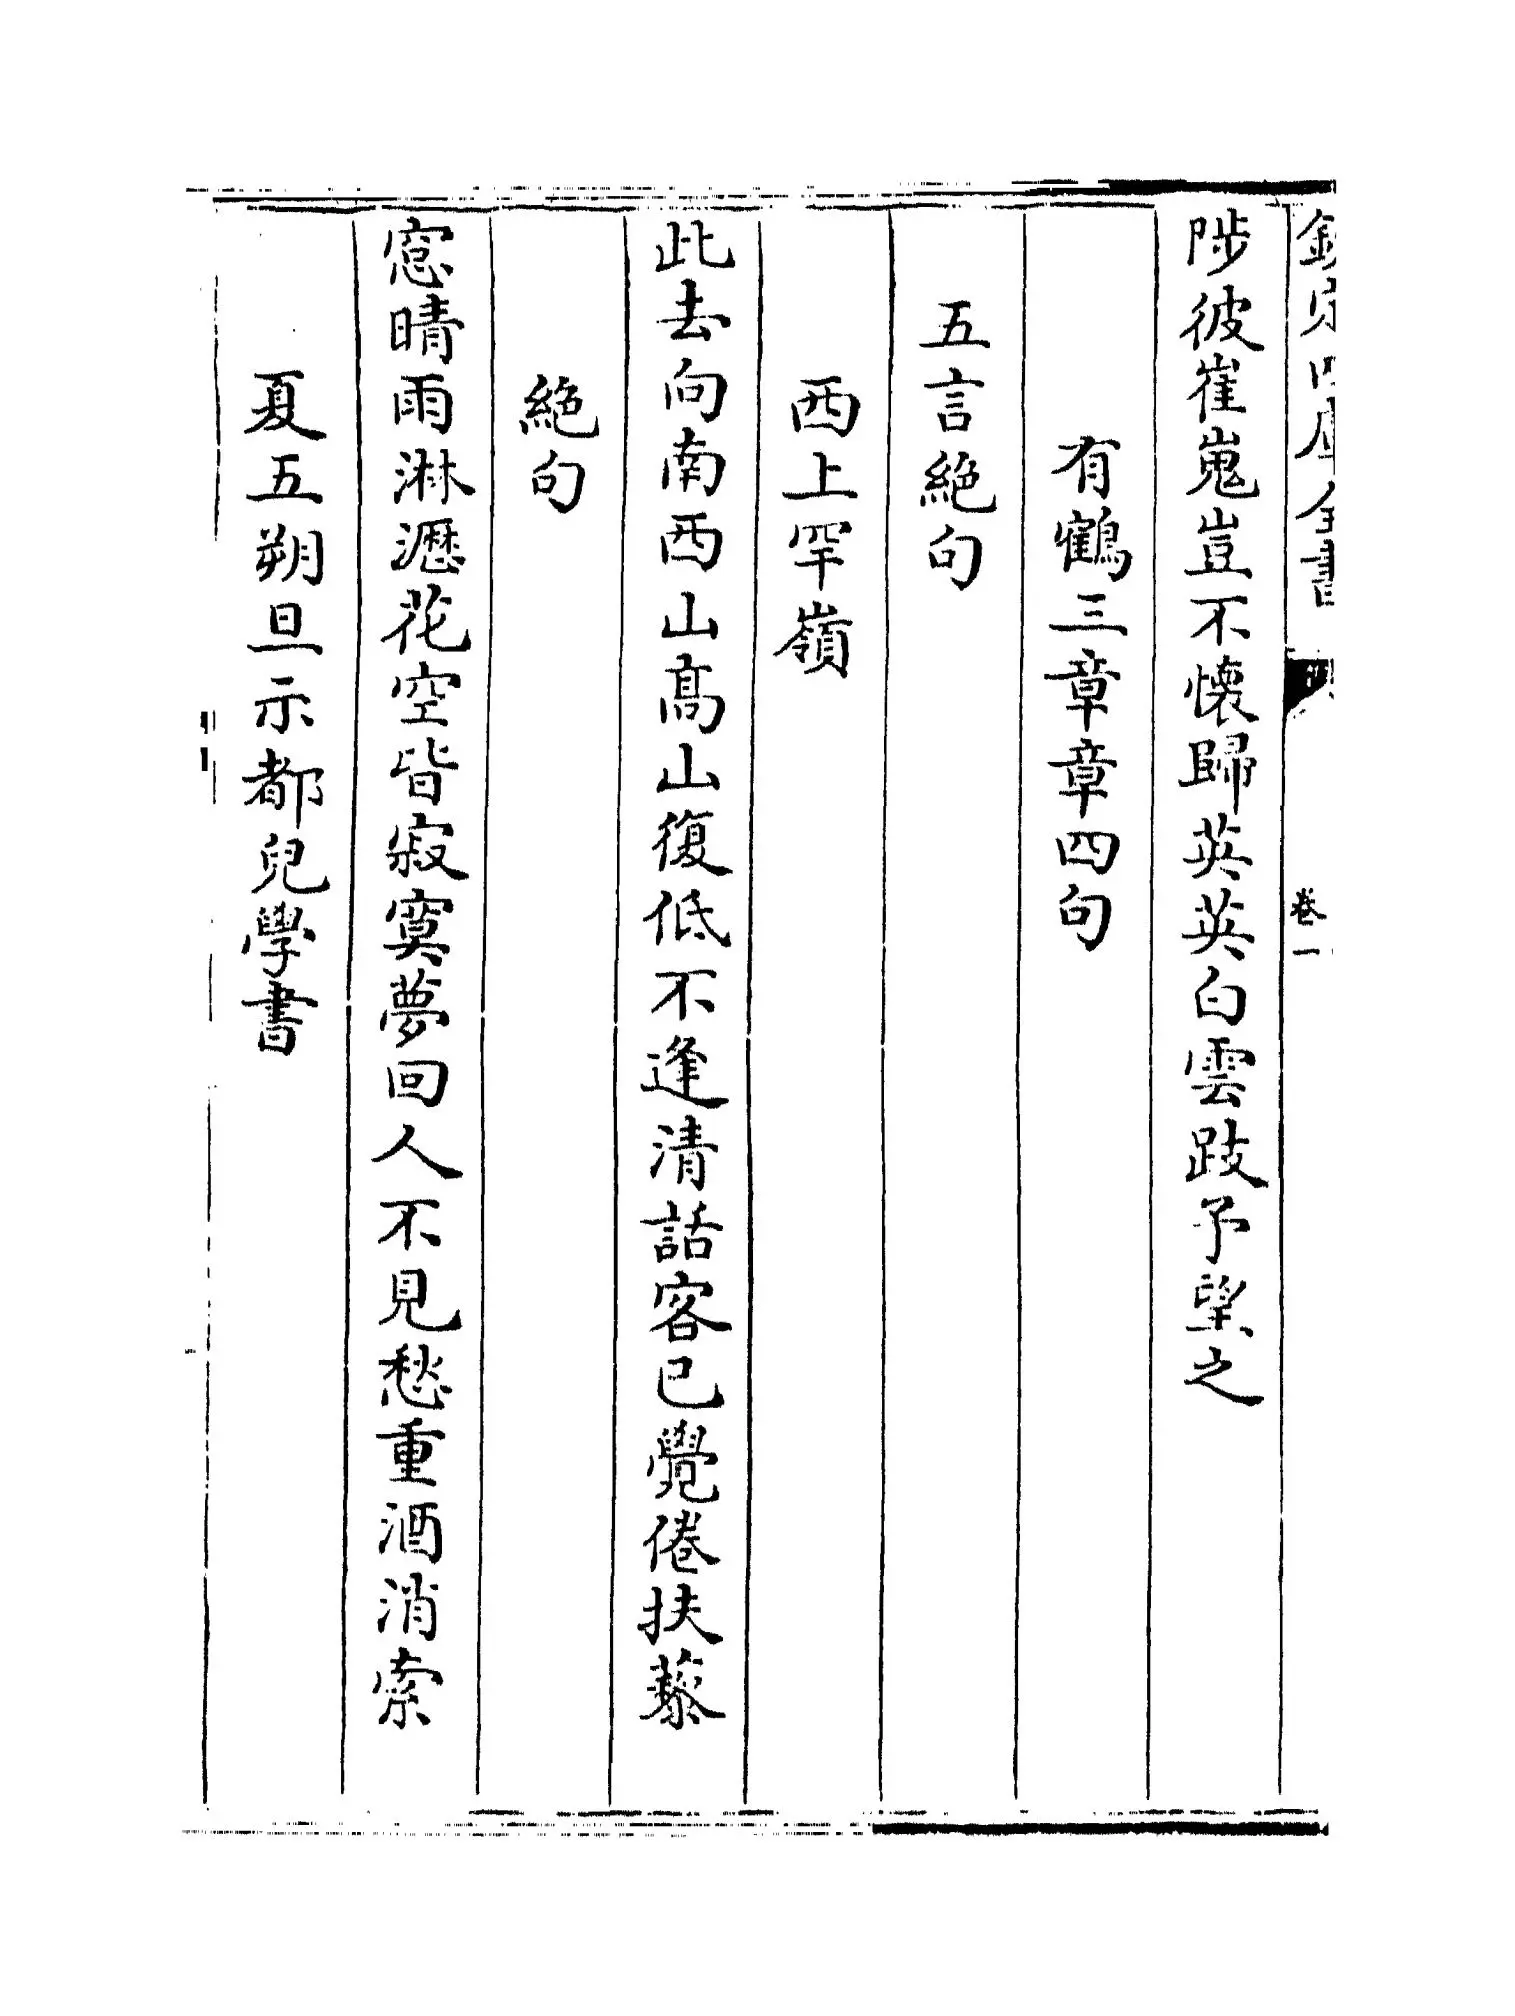 欽定四庫全書
卷一
陟彼崔嵬豈不懷歸英英白雲跂予望之
有鶴三章章四句
五言絶句
西上罕嶺
此去向南西山髙山復低不逢清話客已覺倦扶藜
絶句
窓晴雨淋瀝花空皆寂寞夢回人不見愁重酒消索
夏五朔旦示都兒學書